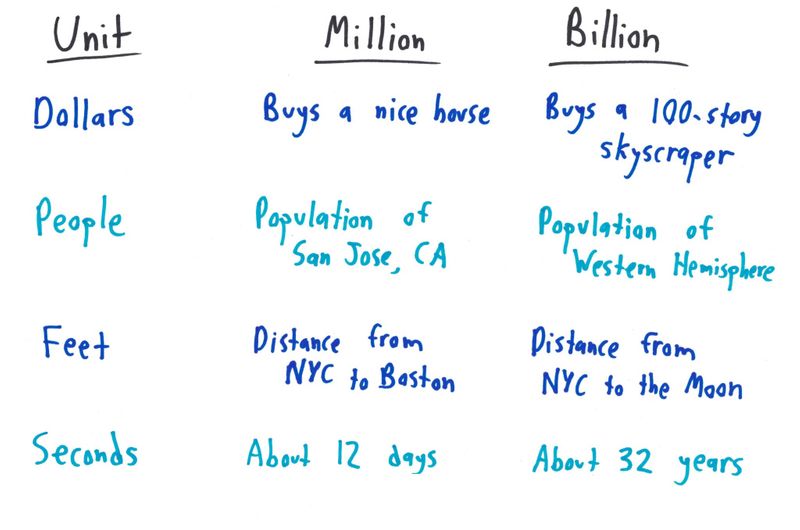 Unit Million Billion
Dollars Buys a nice house Buys a 100-story
skyscraper
People Population of Population of
San Jose, CA Western Hemisphere
Feet Distance from Distance from
NYC to Boston NYC to the Moon
Seconds About 12 days About 32 years